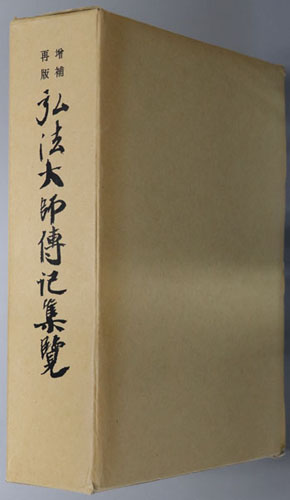 増補
再版
弘法大師傳记集覽